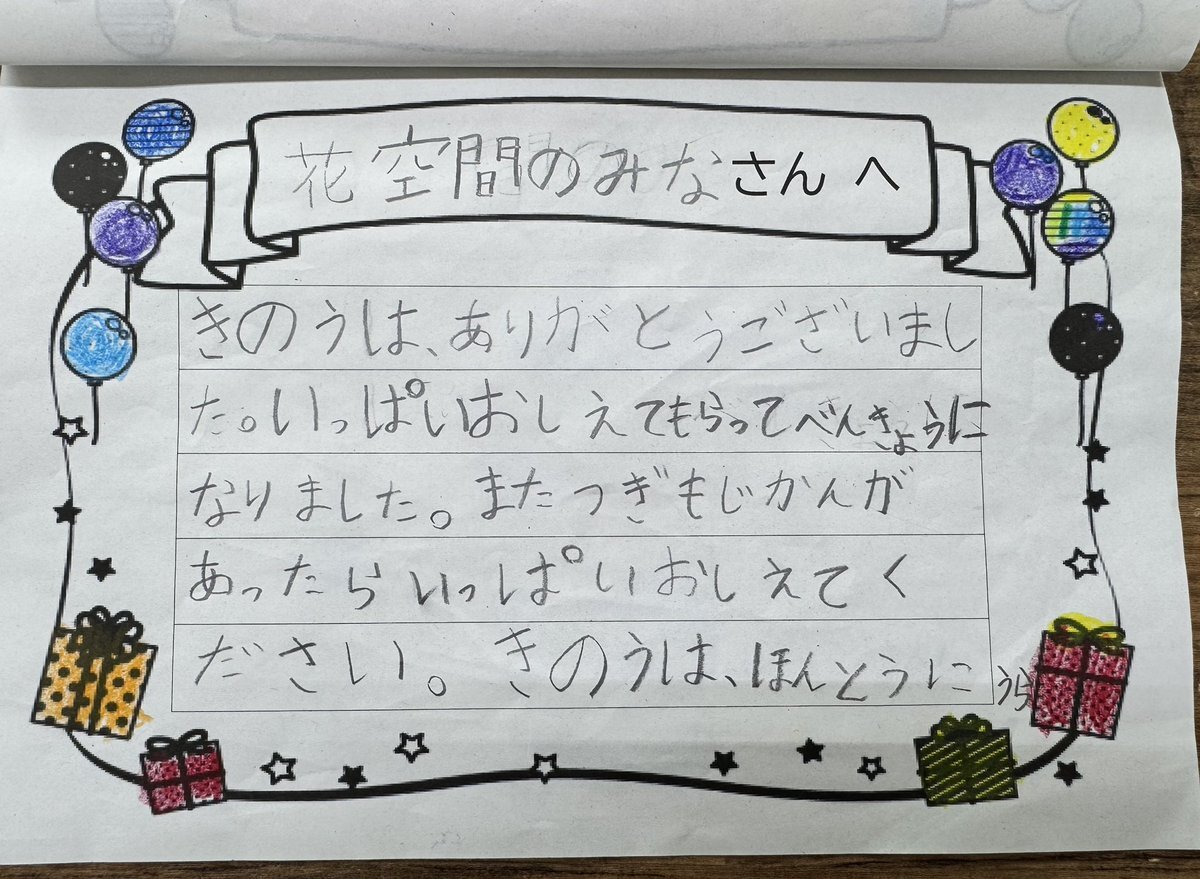 花空間のみなさんへ
きのうは、ありがとうございまし
た。いっぱいおしえてもらってべんきょうに
なりました。またつぎもじかんが
あったらいっぱいおしえてく
ださい。きのうは、ほんとうに
うら